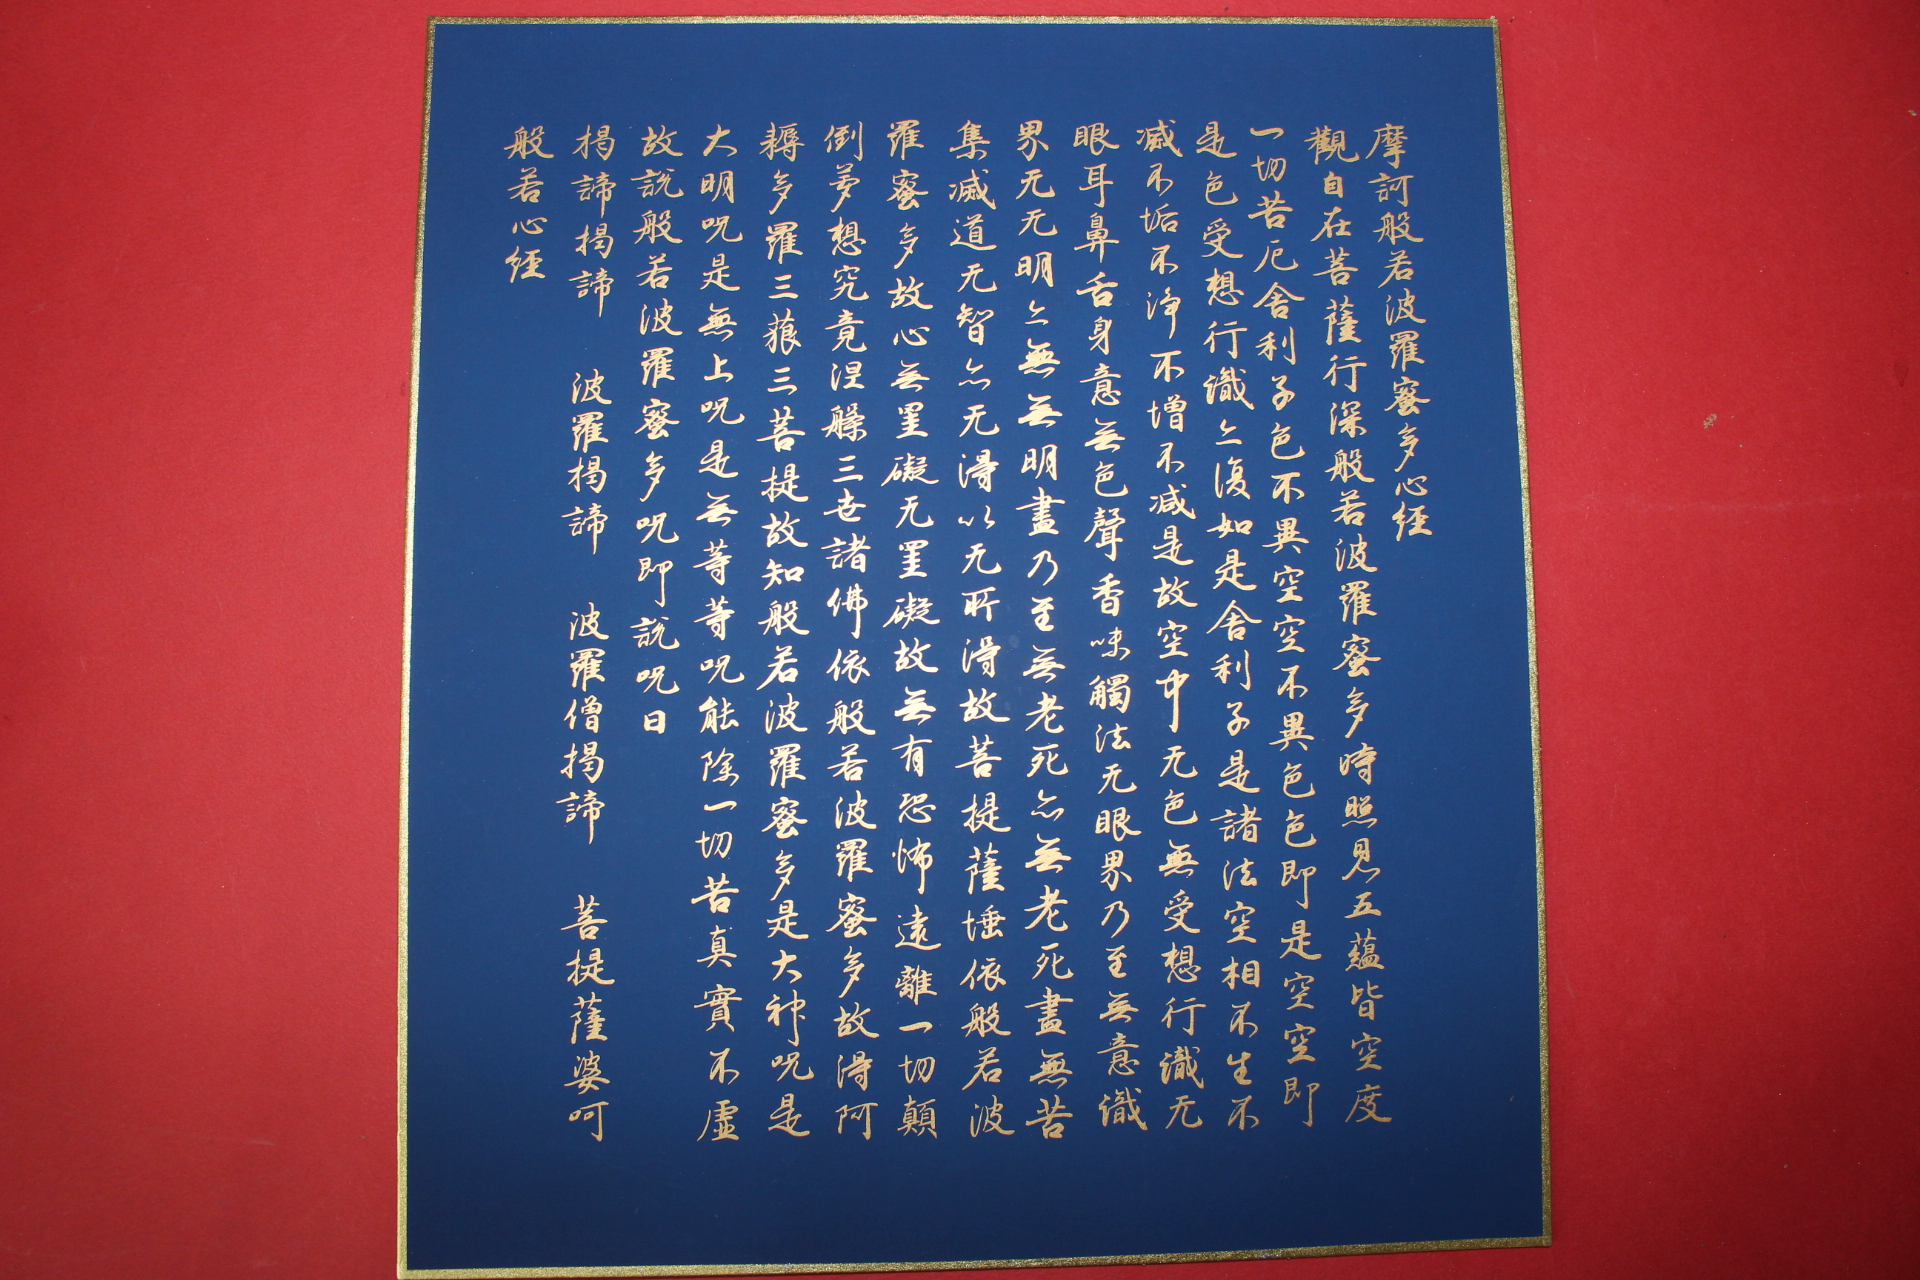 摩訶般若波羅蜜多心経
觀自在菩薩行深般若波羅蜜多時照見五蘊皆空度
一切苦厄舍利子色不異空空不異色色即是空空即
是色受想行識亦復如是舍利子是諸法空相不生不
滅不垢不浄不增不减是故空中无色無受想行識无
眼耳鼻舌身意無色聲香味觸法无眼界乃至無意識
界无无明亦無無明盡乃至無老死亦無老死盡無苦
集滅道无智亦无得以无所得故菩提薩埵依般若波
羅蜜多故心無罣礙无罣礙故無有恐怖遠離一切顛
倒夢想究竟涅槃三世諸佛依般若波羅蜜多故得阿
耨多羅三藐三菩提故知般若波羅蜜多是大神呪是
大明呪是無上呪是無等等呪能除一切苦真實不虛
故說般若波羅蜜多呪即說呪曰
揭諦揭諦　波羅揭諦　波羅僧揭諦　菩提薩婆呵
般若心経